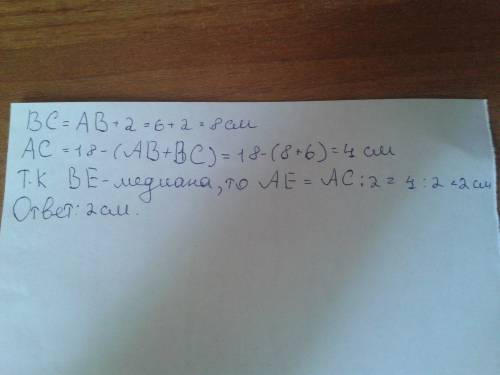 BC = AB + 2 = 6 + 2 = 8 см
AC = 18 - (AB + BC) = 18 - (8 + 6) = 4 см
Т.К BE - медиана, то AE = AC : 2 = 4 : 2 = 2 см
Ответ: 2 см.